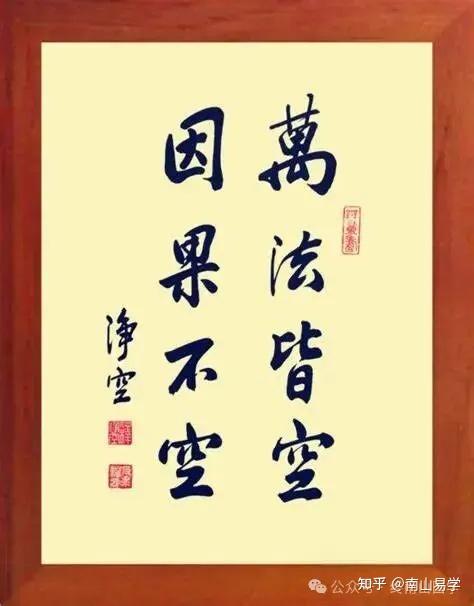 萬法皆空
因果不空
淨空
知乎 @南山易学